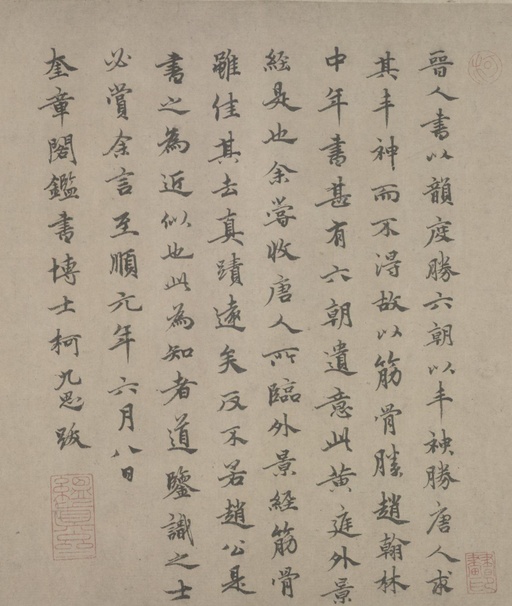 晉人書以韻度勝六朝以丰神勝唐人求
其丰神而不得故以筋骨勝趙翰林
中年書甚有六朝遺意此黃庭外景
經是也余嘗收唐人所臨外景經筋骨
雖佳其去真蹟遠矣反不若趙公是
書之為近似也此為知者道鑒識之士
必賞余言至順元年六月八日
奎章閣鑑書博士柯九思跋